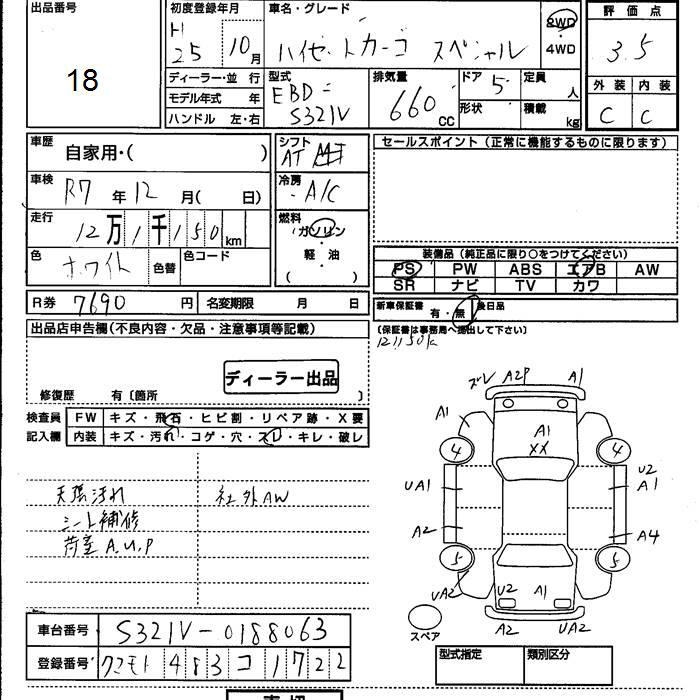 出品番号
18
初度登録年月
H
25 10月
車名・グレード
ハイゼットカーゴ スペシャル
2WD
・
4WD
評価点
3.5
ディーラー・並 行
モデル年式 年
ハンドル 左・右
型式
EBD-
S321V
排気量
660 CC
ドア 5
形状
定員 人
積載 kg
外装 内装
C C
車歴
自家用・( )
シフト
AT
セールスポイント (正常に機能するものに限ります)
車検
R7年12月( 日)
冷房
A/C
走行
12万1千150km
燃料
ガソリン
・
軽油
( )
色
ホワイト
色替
色コード
装備品(純正品に限り○をつけてください)
PS PW ABS エアB AW
SR ナビ TV カワ
R券 7690円
名変期限 月 日
新車保証書
有・無
後日品
(保証書は事務局へ提出して下さい)
121150k
出品店申告欄(不良内容・欠品・注意事項等記載)
ディーラー出品
修復歴 有〔箇所 〕
検査員
記入欄
FW キズ・飛石・ヒビ割・リペア跡・X要
内装 キズ・汚れ・コゲ・穴・スレ・キレ・破レ
天張汚れ
社外AW
シート補修
荷室A.U.P
ズレ A2P A1
A1
A1
XX
4 4
UA1
U2
A1
A2
A4
5 5
UA2
U2 A1
A2 UA2
スペア
車台番号 S321V-0188063
登録番号 クマモト 483 コ 1722
型式指定 類別区分